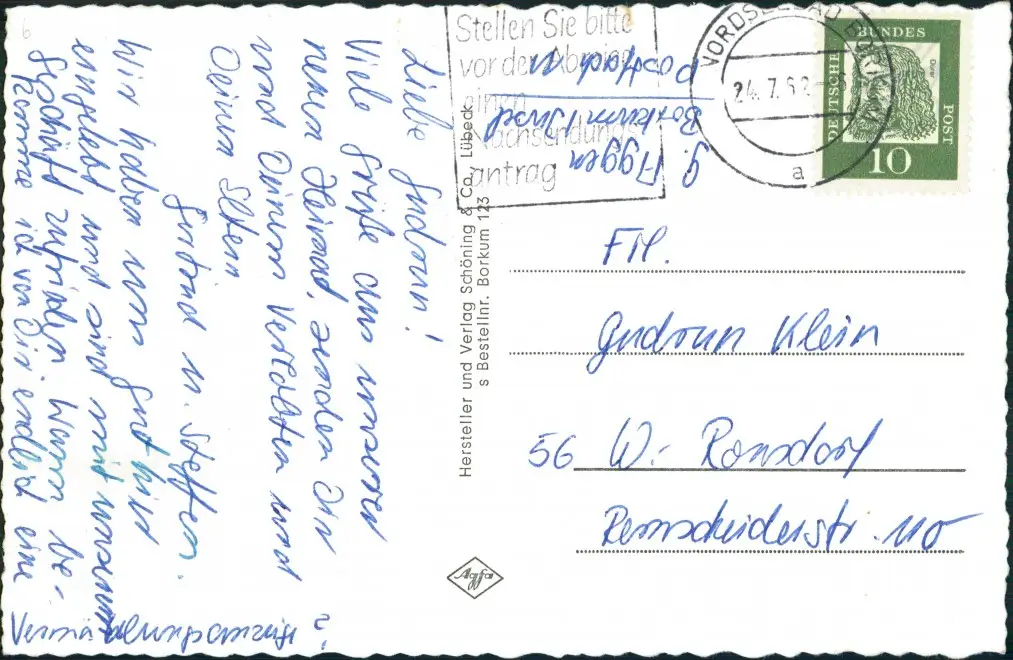 Stellen Sie bitte
vor der Abreise
einen
Nachsendungs-
antrag
NORDSEEBAD BORKUM
24.7.62
a
DEUTSCHE BUNDESPOST
Dürer
10
G. Aggen
Borkum / Insel
Postfach
Liebe Gudrun!
Viele Grüße aus unserer
neuen Heimat, senden Dir
und Deinem Verlobten und
Deinen Eltern
u. Steffen.
Wir haben uns gut hier
eingelebt und sind mit unserem
Geschäft zufrieden. Wann be-
komme ich von Dir endlich eine
Vermählungsanzeige?
Hersteller und Verlag Schöning & Co., Lübeck
s Bestellnr. Borkum 123
Agfa
Frl.
Gudrun Klein
56 W.- Ronsdorf
Remscheiderstr. 110
6